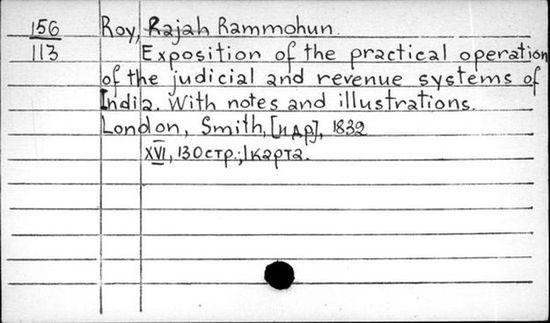 156 Roy, Rajah Rammohun.
113 Exposition of the practical operation
of the judicial and revenue systems of
India. With notes and illustrations.
London, Smith, [и др], 1832
XVI, 130стр.; 1 карта.